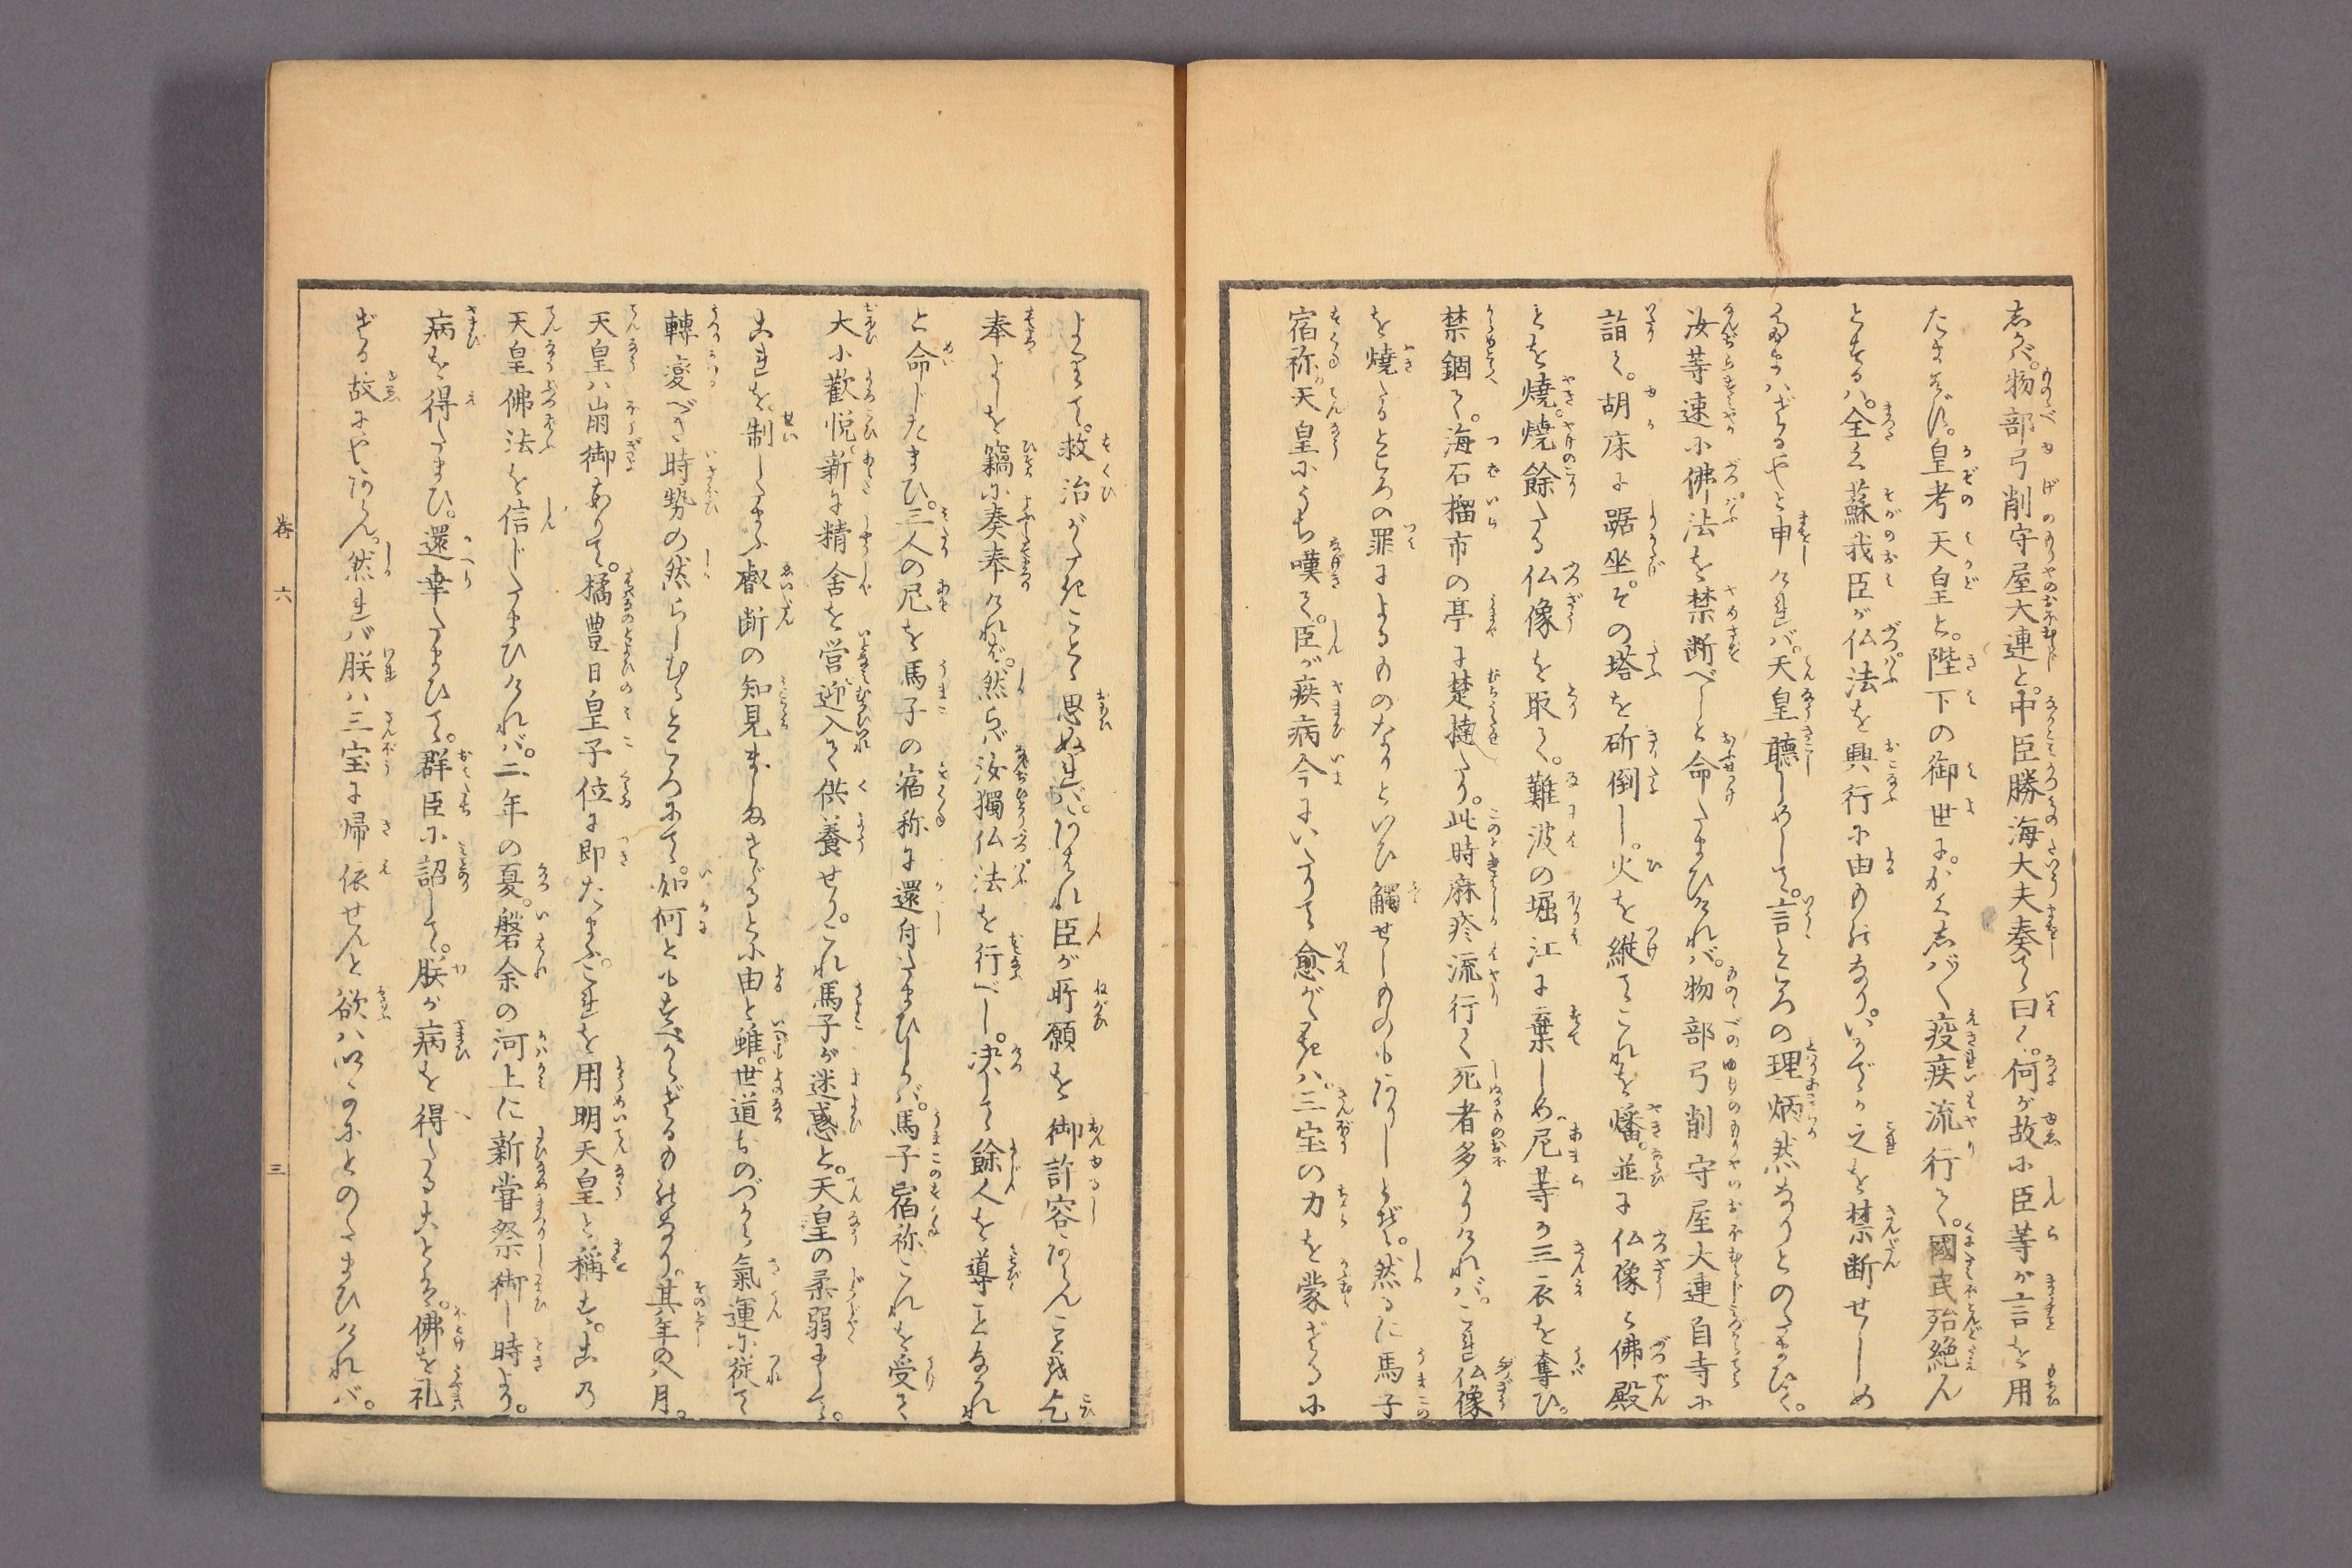 しかば。物部弓削守屋大連と。中臣勝海大夫奏て曰く。何が故に臣等が言を用
たまはず。皇考天皇と。陛下の御世に。かくしば〱疫疾流行て。國民殆絶ん
とするは。全く蘇我臣が仏法を興行に由ものなり。いかでか之を禁断せしめ
たまはざるやと申ければ。天皇聽しめして。言ところの理炳然なりとのたまひて。
汝等速に佛法を禁断べしと命たまひければ。物部弓削守屋大連自寺に
詣て。胡床に踞坐。その塔を斫倒し。火を縦てこれを燔。並に仏像と佛殿
とを焼。焼餘たる仏像を取て。難波の堀江に棄しめ。尼等が三衣を奪ひ。
禁錮て。海石榴市の亭に楚撻たり。此時麻疹流行て死者多かりければ。これ仏像
を焼たるところの罪によるものなりといひ觸せしものもありしとぞ。然るに馬子
宿祢。天皇にうち嘆て。臣が疾病今にいたりて愈がたきは。三宝の力を蒙ざるに
よりて。救治がたきことゝ思ぬれば。あはれ臣が所願を御許容あらんことを乞
奉よしを竊に奏奉ければ。然らば汝獨仏法を行べし。决して餘人を導ことなかれ
と命じたまひ。三人の尼を馬子の宿祢に還付たまひしかば。馬子宿祢これを受て
大に歡悦。新に精舍を営迎入て供養せり。これ馬子が迷惑と。天皇の柔弱にして。
これを制したまふ叡断の知見ましまさざるとに由と雖。世道おのづから氣運に従て
轉変べき時勢の然らしむるところにて。如何ともすべからざるものなり。其年の八月。
天皇ハ崩御ありて。橘豊日皇子位に即たまふ。これを用明天皇と稱す。この
天皇佛法を信じたまひければ。二年の夏。磐余の河上に新甞祭御し時より。
病を得たまひ。還幸たまひて。群臣に詔して。朕が病を得たることは。佛を礼
ざる故にやあらん。然れバ朕ハ三宝に帰依せんと欲ハいかにとのたまひければ。
巻六
三